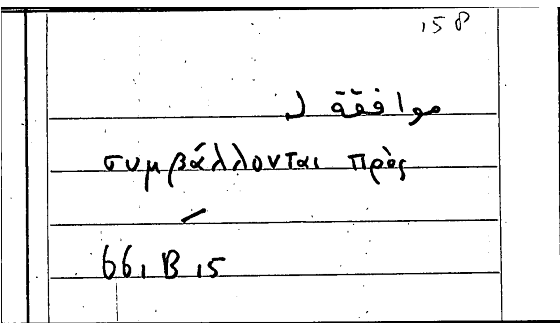 158
موافقة لـ
συμβάλλονται πρὸς
66, B, 5